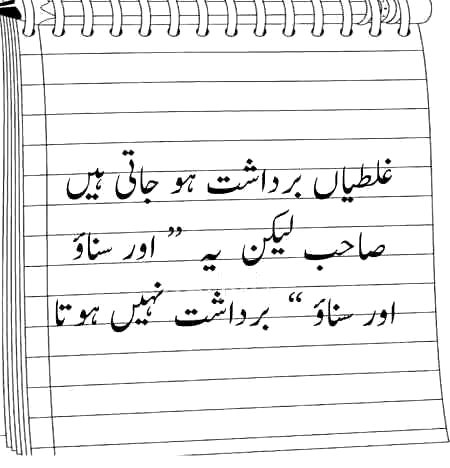 غلطیاں برداشت ہو جاتی ہیں
صاحب لیکن یہ ” اور سناؤ
اور سناؤ “ برداشت نہیں ہوتا